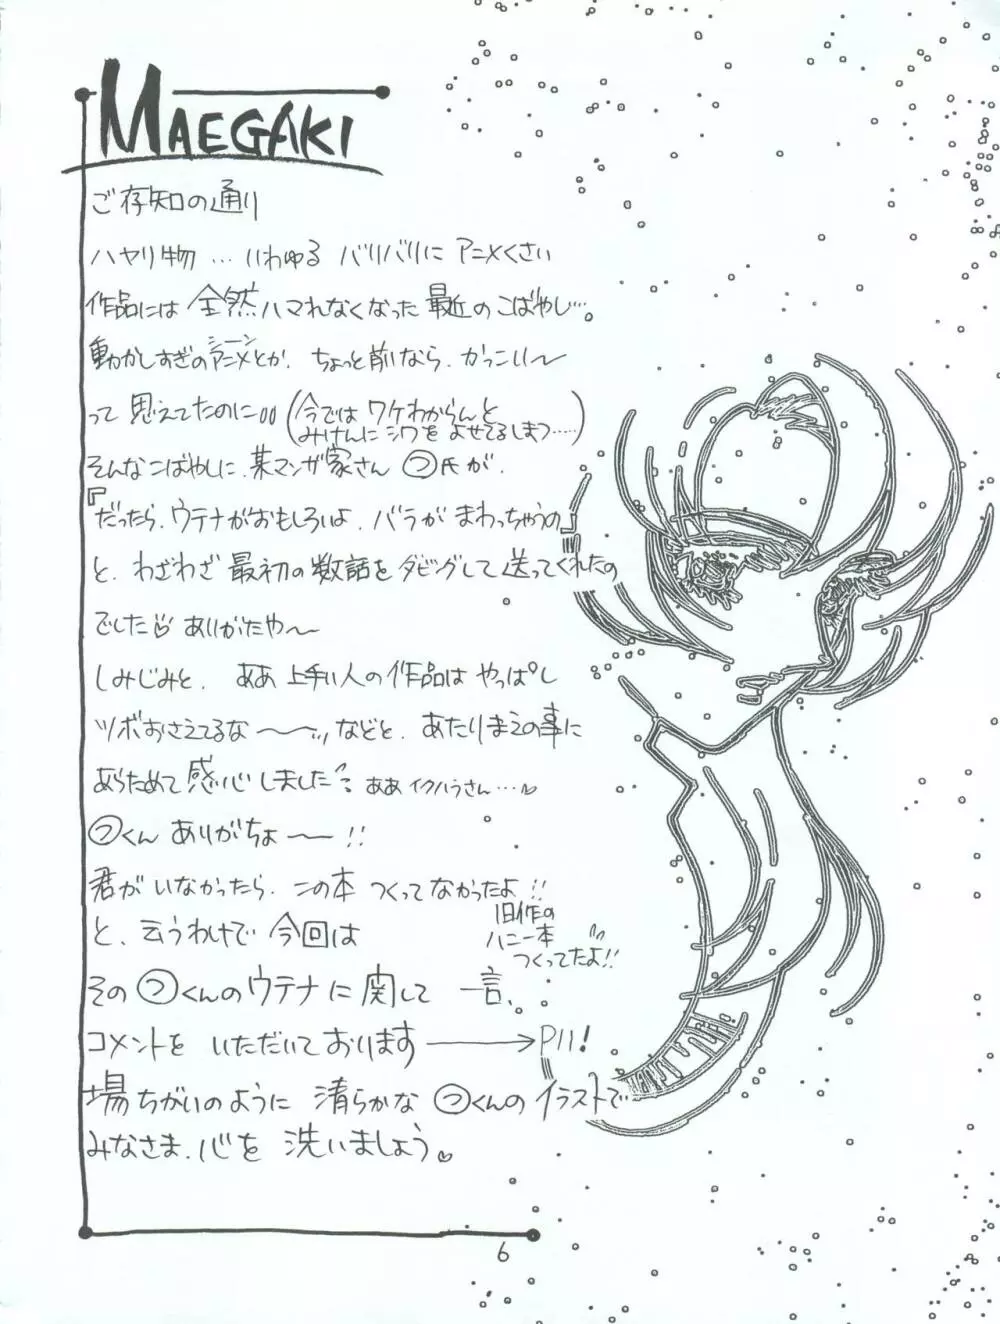 MAEGAKI
ご存知の通り
ハヤリ物…いわゆる バリバリに アニメくさい
作品には 全然ハマれなくなった 最近のこばやし…。
動かしすぎのアニメとか、ちょっと前なら、かっこいい〜
シーン
って 思えてたのに
(今では ワケわからんと
みけんに シワを よせてるしまつ……)
そんなこばやしに、某マンガ家さん つ氏が、
『だったら、ウテナがおもしろいよ、バラが まわっちゃうの』
と、わざわざ 最初の数話を ダビングして 送ってくれたの
でした ありがたや〜
しみじみと、 ああ 上手い人の作品は やっぱし
ツボおさえてるな〜〜 などと、あたりまえの事に
あらためて 感心しました ああイクハラさん…♡
つくん ありがちょ〜〜!!
君が いなかったら、この本 つくってなかったよ!!
旧作の
ハニー本
つくってたよ!!
と、云うわけで 今回は
そのつくんのウテナに関して 一言、
コメントを いただいております →P11!
場ちがいのように 清らかな つくんの イラストで
みなさま、心を 洗いましょう。♡
6